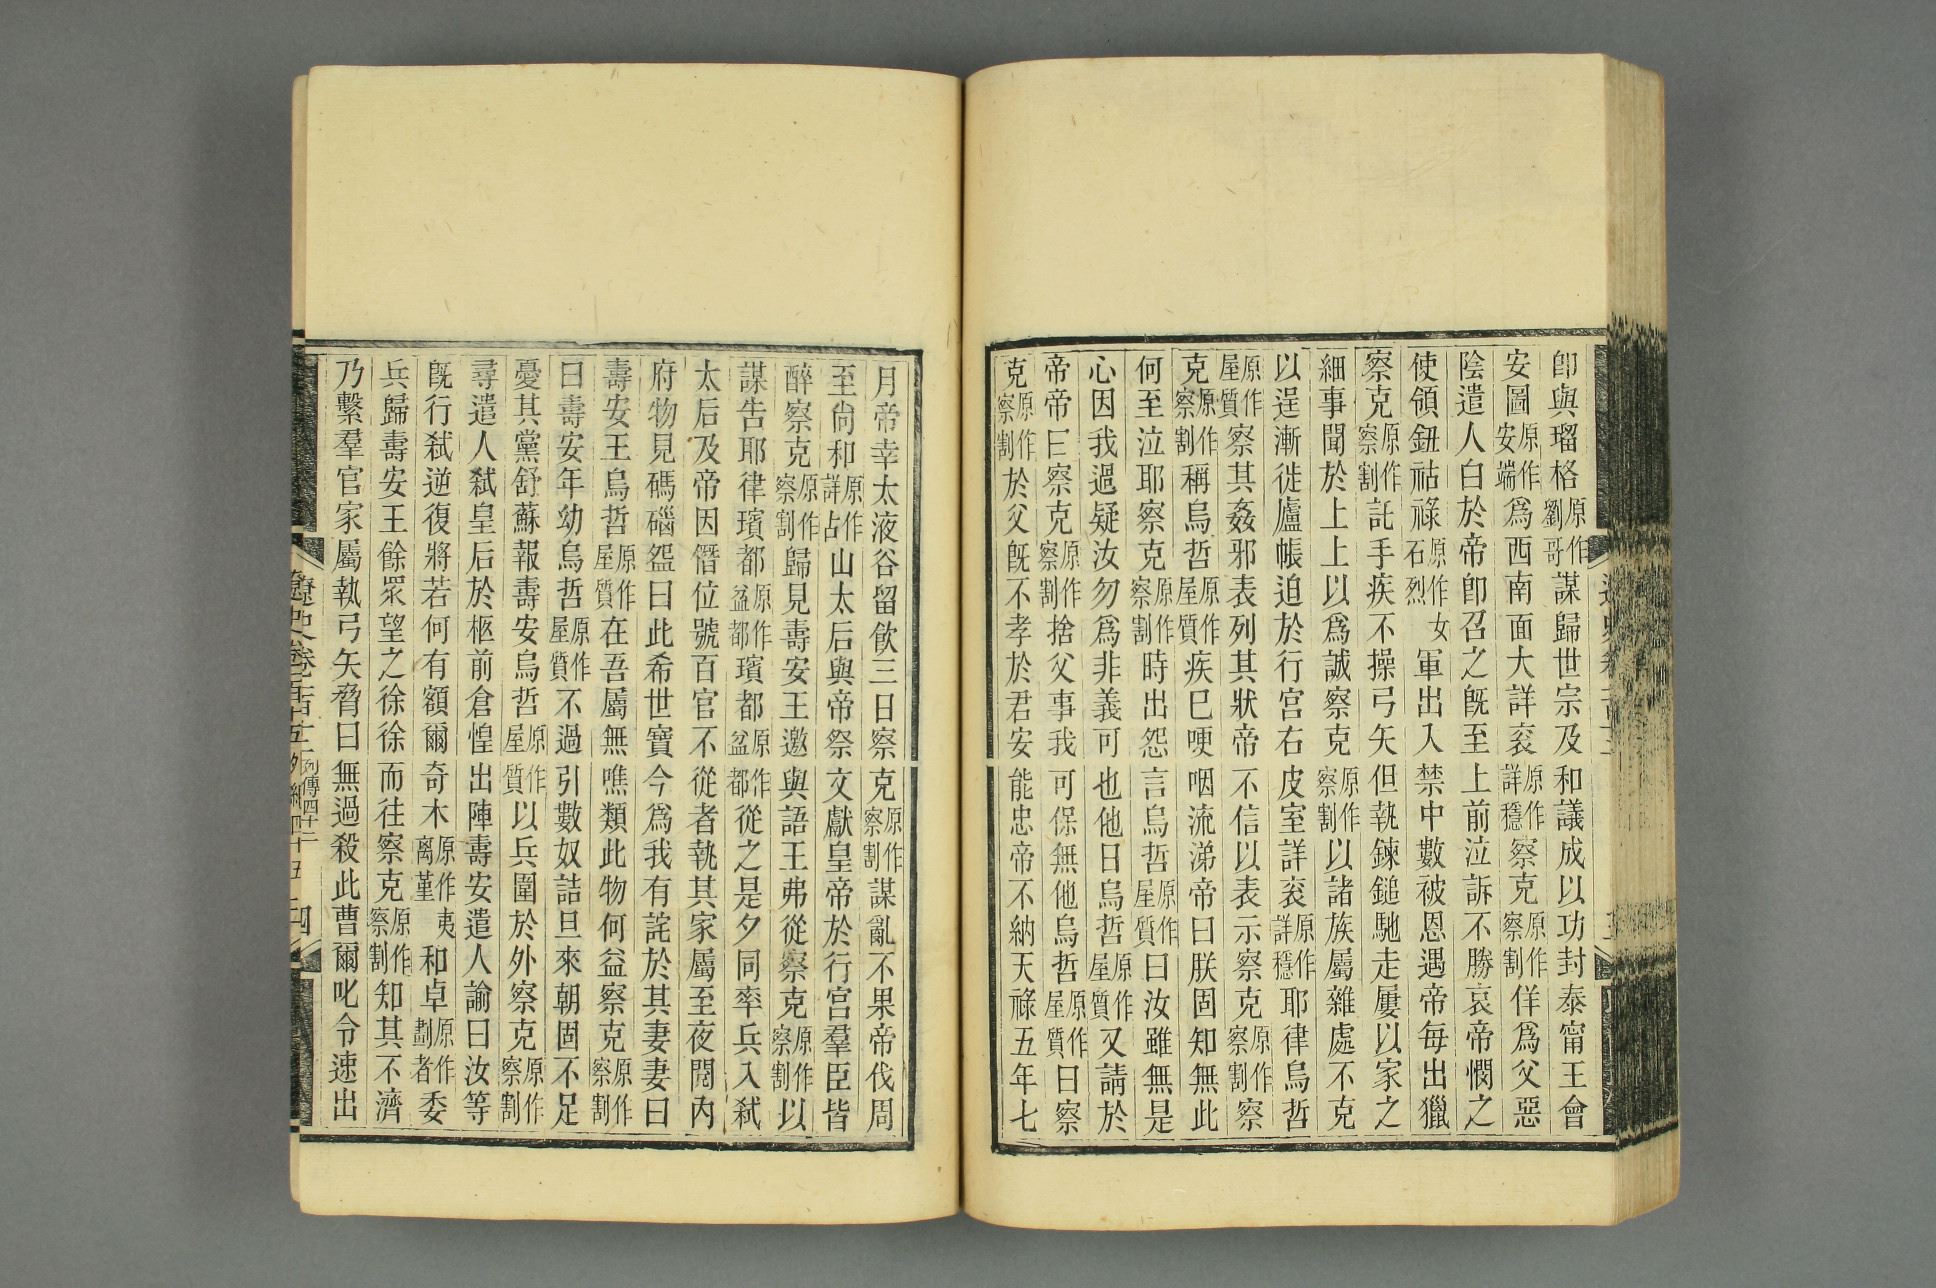 卽與瑠格原作劉哥謀歸世宗及和議成以功封泰甯王會
安圖原作安端爲西南面大詳衮原作詳穩察克原作察割佯爲父惡
陰遣人白於帝卽召之旣至上前泣訴不勝哀帝憫之
使領鈕祜祿原作女石烈軍出入禁中數被恩遇帝每出獵
察克原作察割託手疾不操弓矢但執鍊鎚馳走屢以家之
細事聞於上上以爲誠察克原作察割以諸族屬雜處不克
以逞漸徙廬帳迫於行宮右皮室詳衮原作詳穩耶律烏哲
原作屋質察其姦邪表列其狀帝不信以表示察克原作察割察
克原作察割稱烏哲原作屋質疾巳哽咽流涕帝曰朕固知無此
何至泣耶察克原作察割時出怨言烏哲原作屋質曰汝雖無是
心因我過疑汝勿爲非義可也他日烏哲原作屋質又請於
帝帝曰察克原作察割捨父事我可保無他烏哲原作屋質曰察
克原作察割於父旣不孝於君安能忠帝不納天祿五年七
月帝幸太液谷留飲三日察克原作察割謀亂不果帝伐周
至尙和原作詳占山太后與帝祭文獻皇帝於行宮羣臣皆
醉察克原作察割歸見壽安王邀與語王弗從察克原作察割以
謀告耶律璸都原作盆都璸都原作盆都從之是夕同率兵入弑
太后及帝因僭位號百官不從者執其家屬至夜閱內
府物見碼碯盌曰此希世寶今爲我有詫於其妻妻曰
壽安王烏哲原作屋質在吾屬無噍類此物何益察克原作察割
曰壽安年幼烏哲原作屋質不過引數奴詰旦來朝固不足
憂其黨舒蘇報壽安烏哲原作屋質以兵圍於外察克原作察割
尋遣人弑皇后於柩前倉惶出陣壽安遣人諭曰汝等
旣行弑逆復將若何有額爾奇木原作夷离堇和卓原作劃者委
兵歸壽安王餘眾望之徐徐而往察克原作察割知其不濟
乃繫羣官家屬執弓矢脅曰無過殺此曹爾叱令速出
遼史卷一百十二 列傳四十二 四